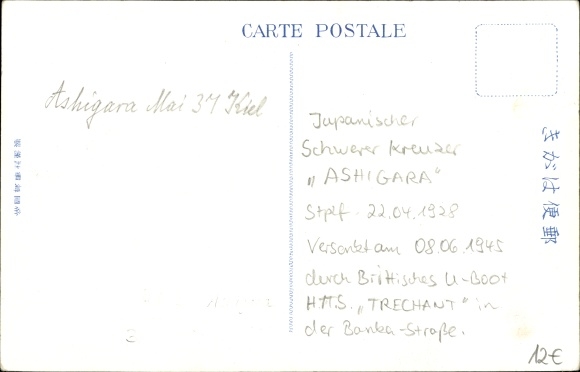 CARTE POSTALE
Ashigara Mai 37 Kiel
Japanischer
Schwerer Kreuzer
„ASHIGARA“
Stplf. 22.04.1928
Versenkt am 08.06.1945
durch Britisches U-Boot
HMS. „TRECHANT“ in
der Banka-Straße.
きがは便郵
12€